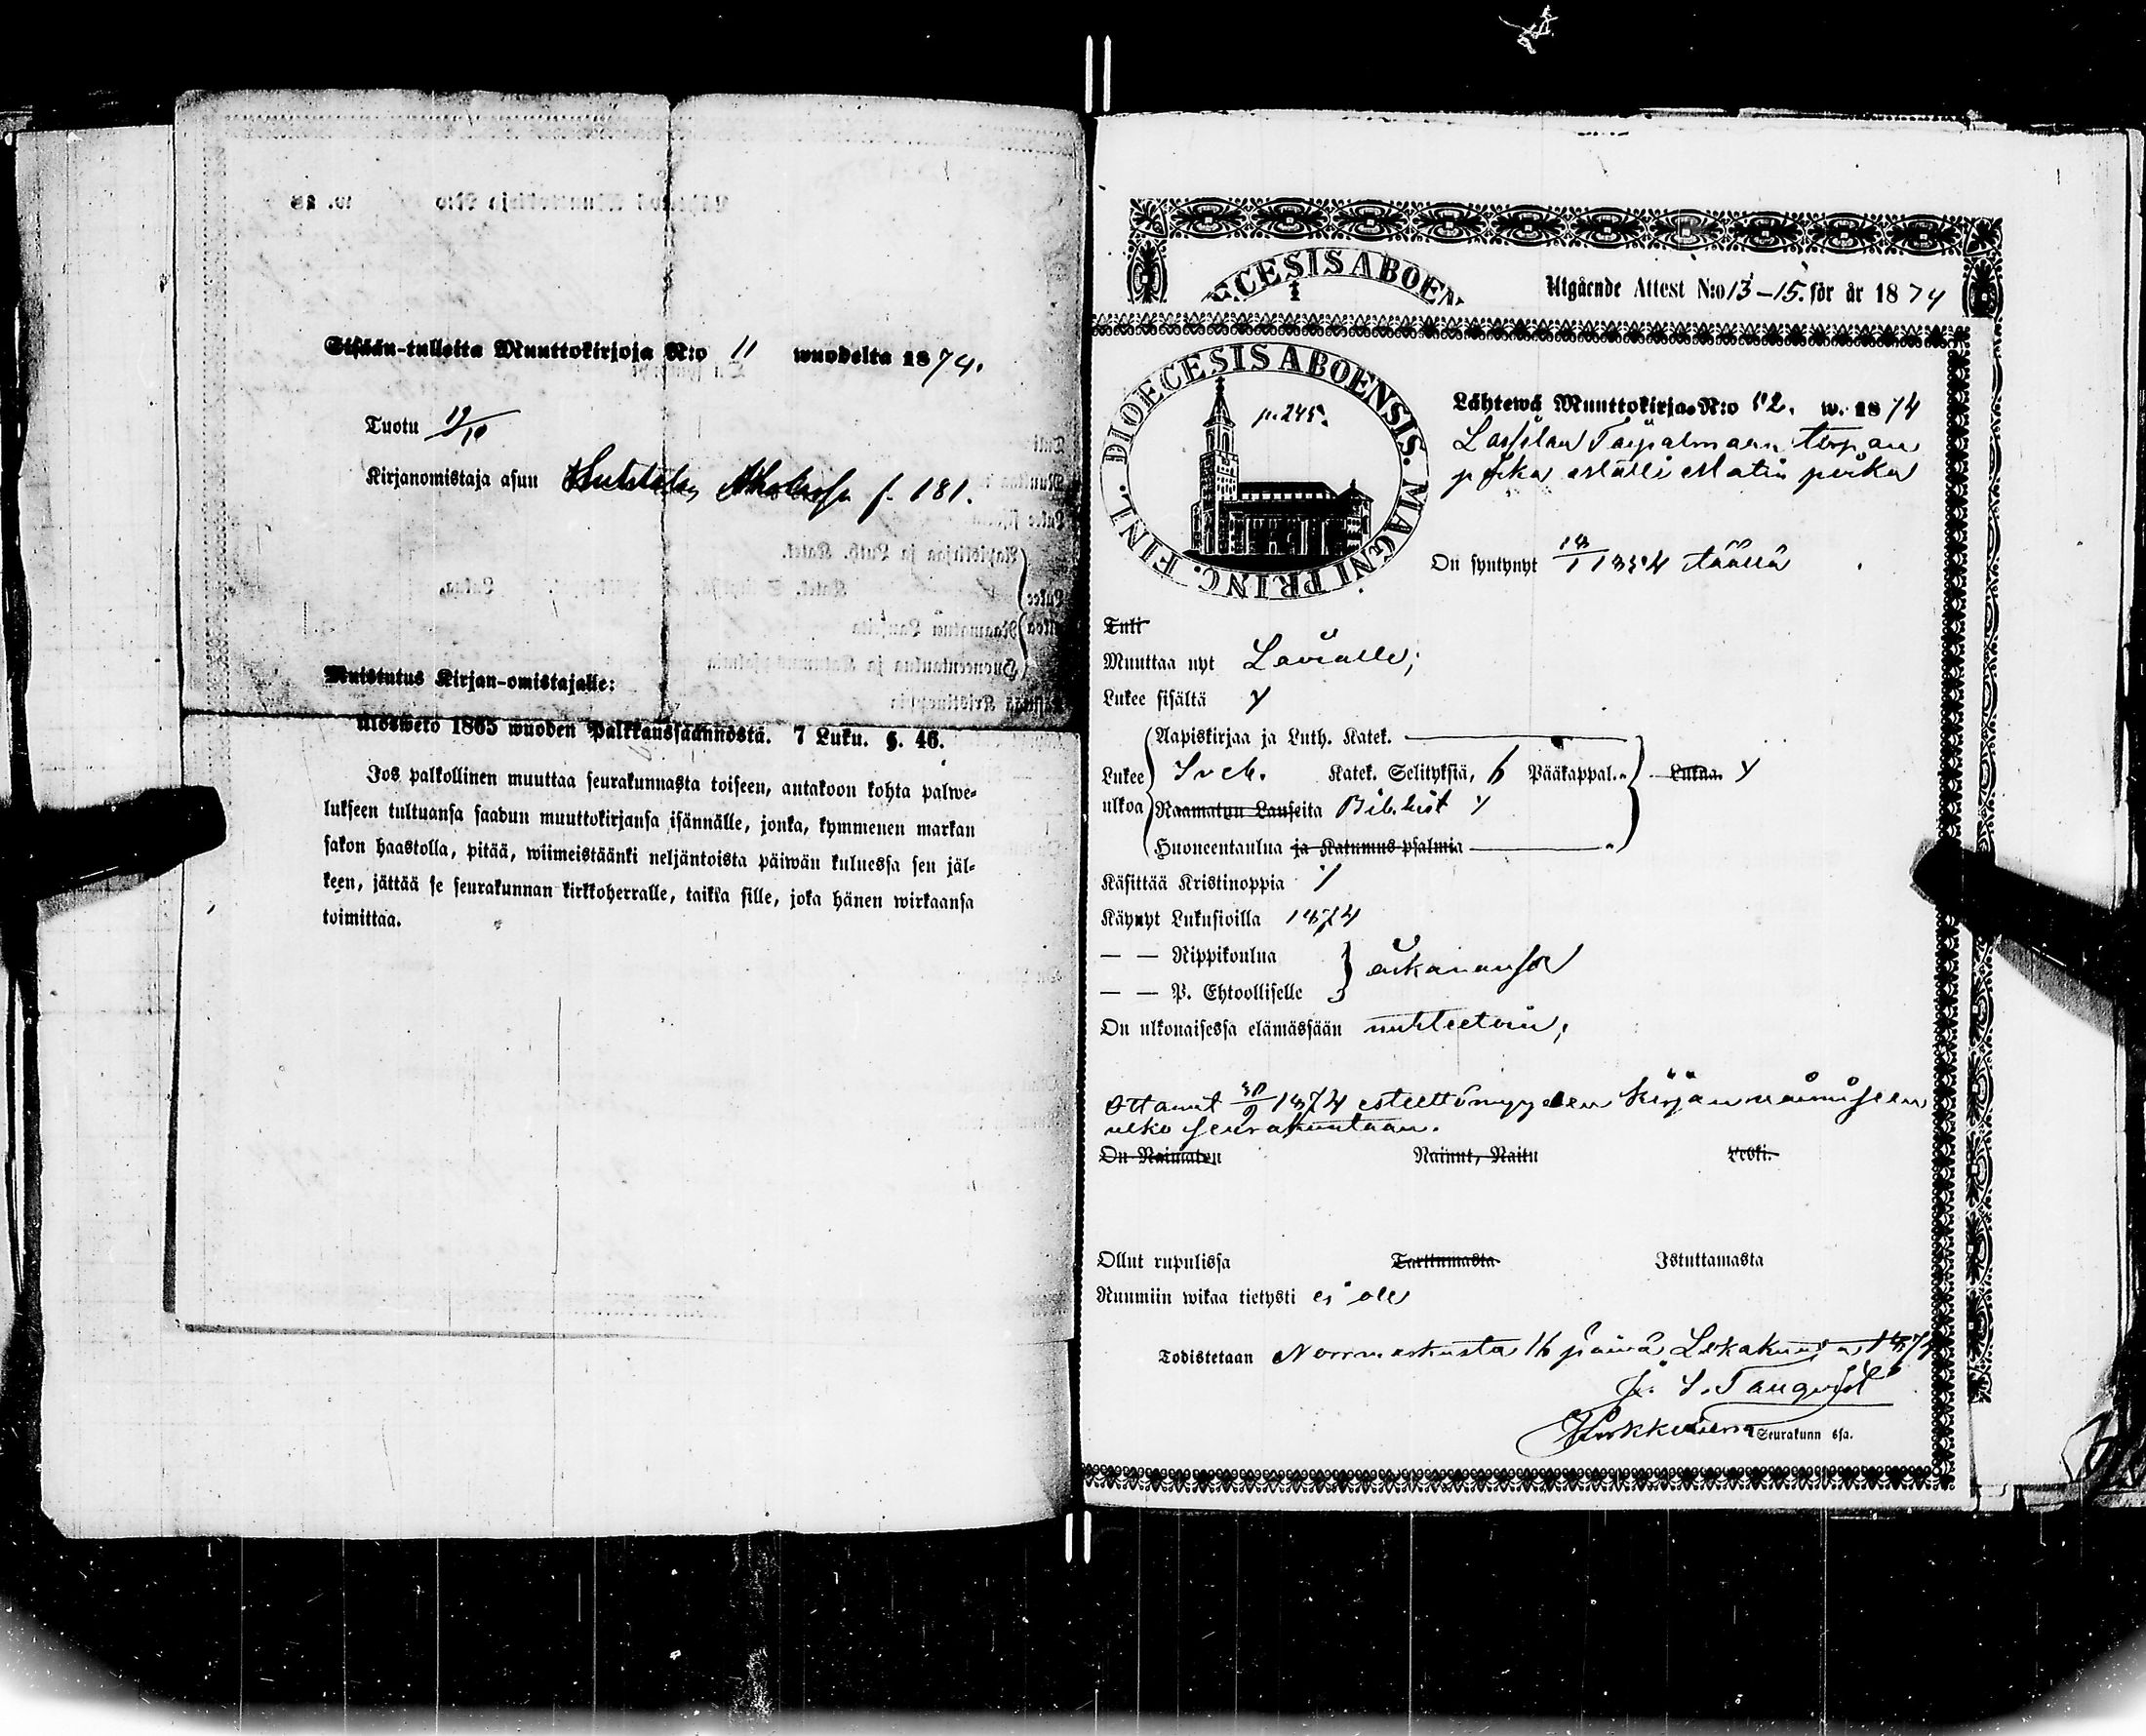 Sisään-tulleita Muuttokirjoja N:o 11 wuodelta 1874.
Tuotu 19/10
Kirjanomistaja asuu f. 181.
Muistutus Kirjan-omistajalle:
Ulosweto 1865 wuoden Palkkaussäännöstä. 7 Luku. §. 46.
Jos palkollinen muuttaa seurakunnasta toiseen, antakoon kohta palwe-
lukseen tultuansa saadun muuttokirjansa isännälle, jonka, kymmenen markan
sakon haastolla, pitää, wiimeistäänki neljäntoista päiwän kuluessa sen jäl-
keen, jättää se seurakunnan kirkkoherralle, taikka sille, joka hänen wirkaansa
toimittaa.
Utgående Attest N:o 13-15. för år 1874
DIOECESIS ABOENSIS. MAGNI PRINC. FINL.
p. 245.
Lähtewä Muuttokirja N:o 12. w. 1874
Lassilan torpan
poika Malli Matin poika
On syntynyt 1854 täällä
Tuli
Muuttaa nyt Lavialle;
Lukee sisältä y
Aapiskirjaa ja Luth. Katek.
Lukee Sveb. Katek. Selityksiä, 6 Pääkappal. Lukua. y
ulkoa Raamatun Lauseita Bib. hist y
Huoneentaulua ja Katumus-psalmia
Käsittää Kristinoppia y
Käynyt Lukusioilla 1874
— — Rippikoulua
aikanansa
— — P. Ehtoolliselle
On ulkonaisessa elämässään nuhteetoin;
Ottanut 30/9 1874 esteettömyyden kirjan naimiseen
ulko seurakuntaan.
On Naimaton Nainut, Naitu Leski.
Ollut rupulissa Tarttumasta Istuttamasta
Ruumiin wikaa tietysti ei ole
Todistetaan Norrmarkusta 16 päivä Lokakuussa 1874
Tanqvist
Kirkkoherra Seurakunn ssa.